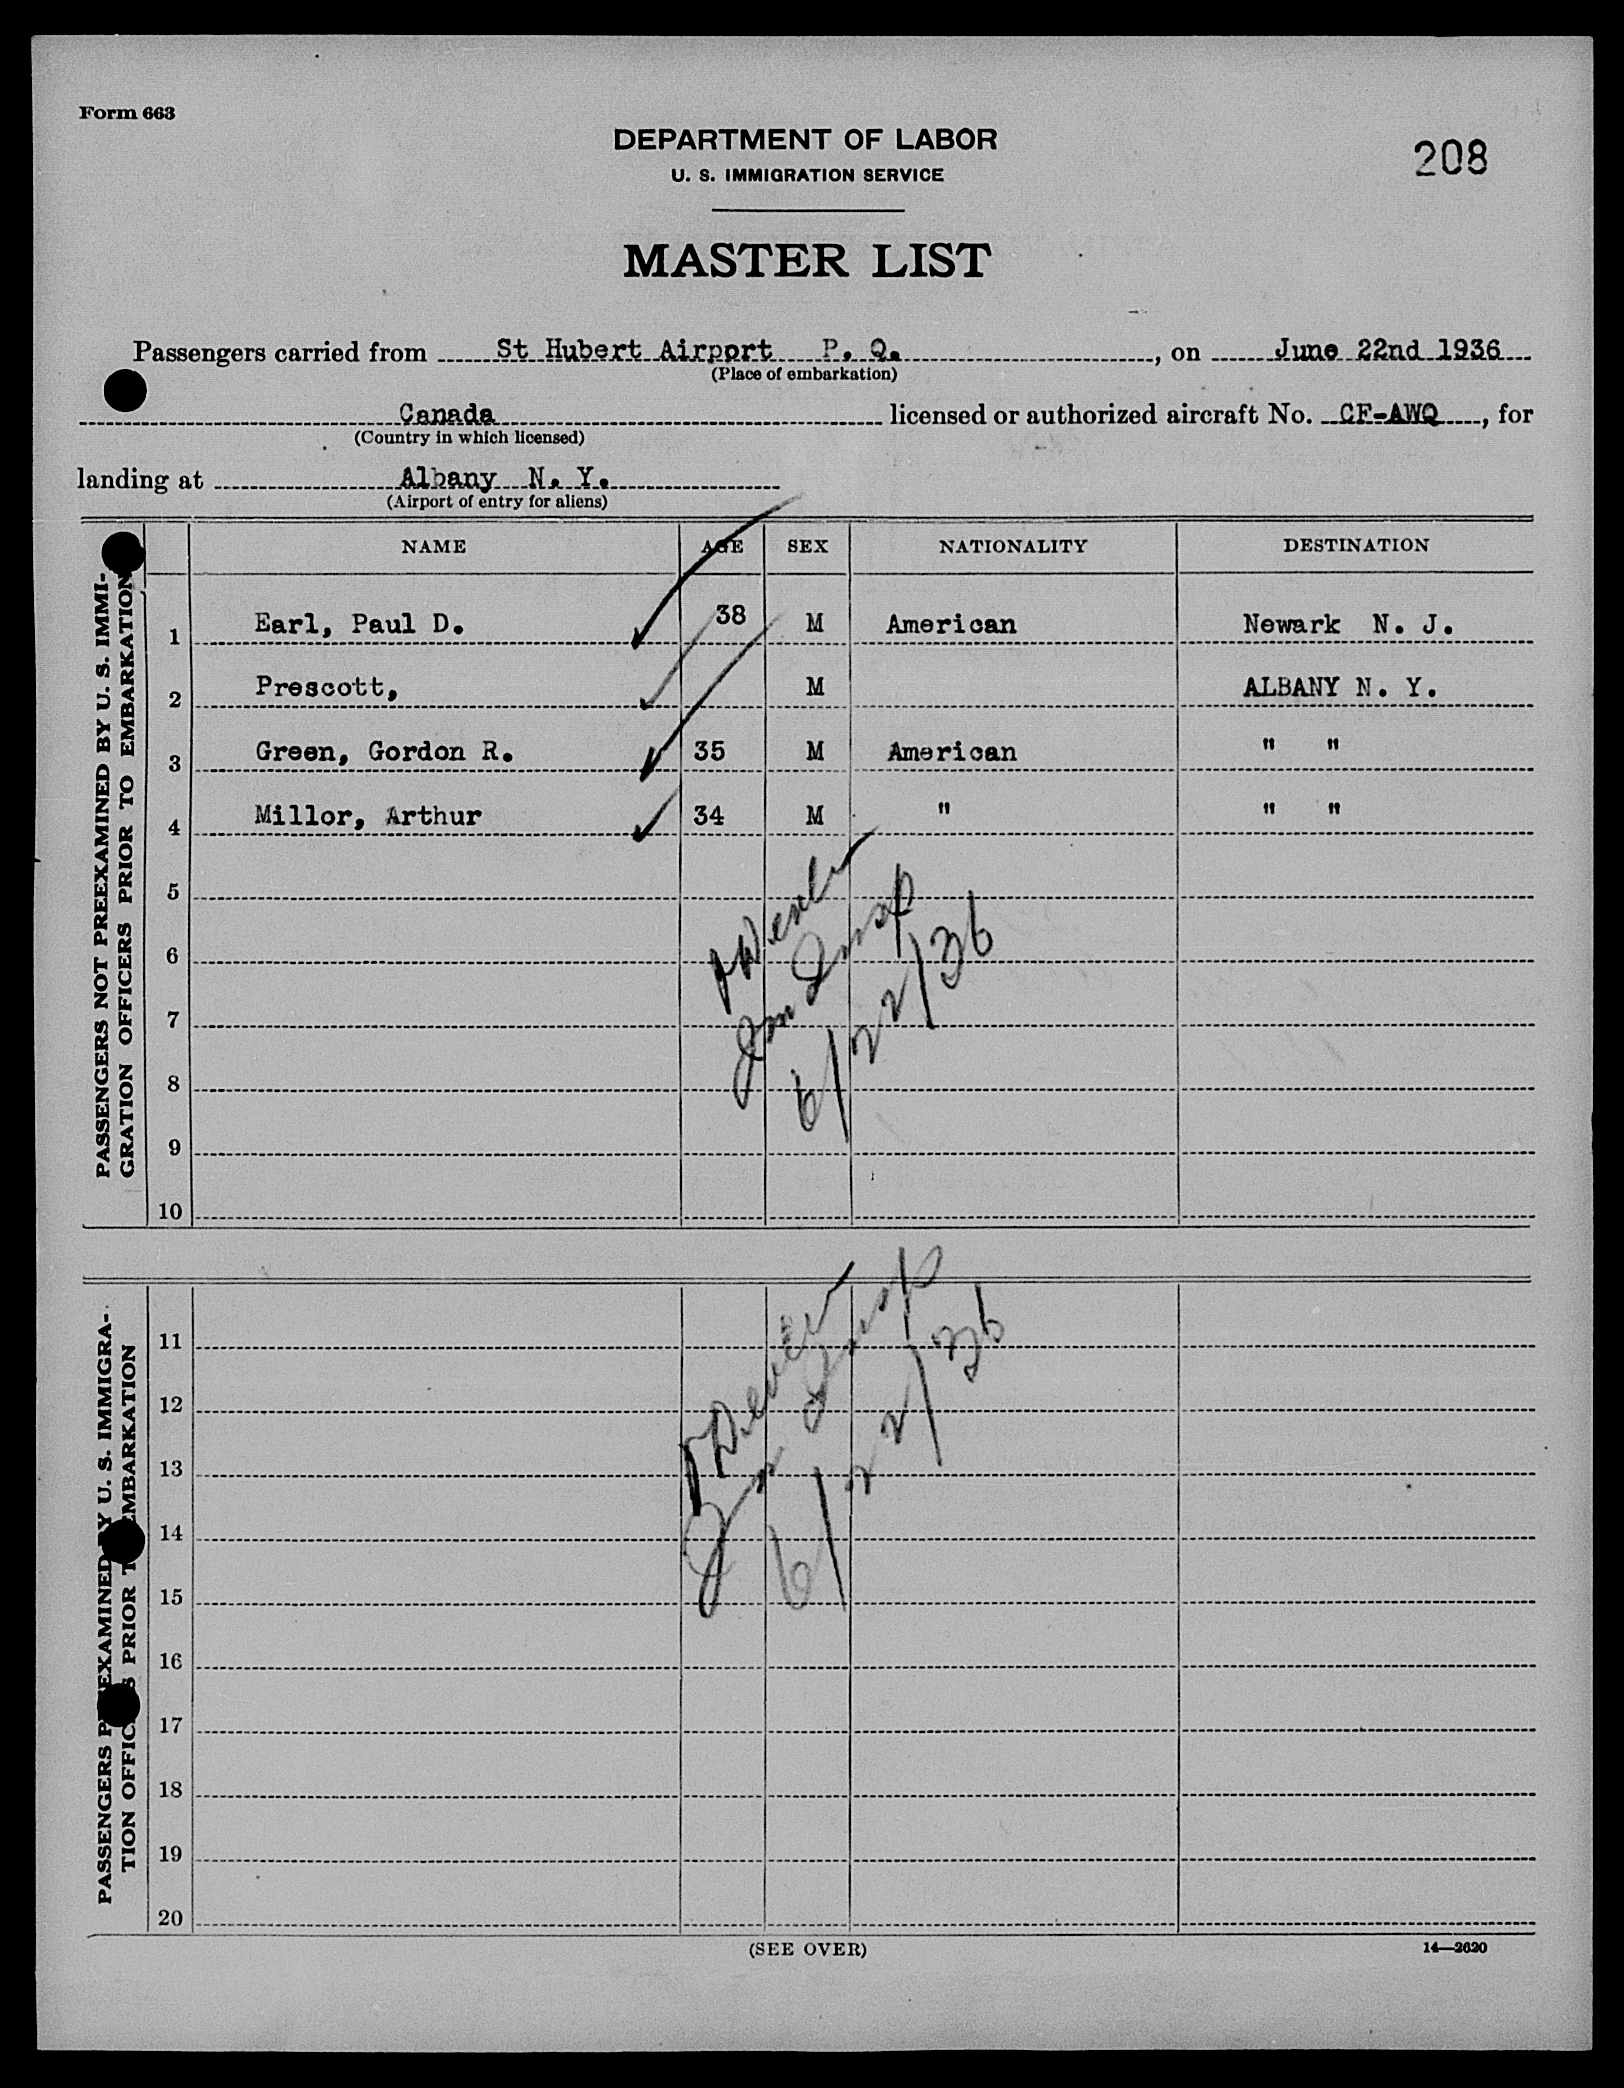 Form 663
DEPARTMENT OF LABOR
U. S. IMMIGRATION SERVICE
208
MASTER LIST
Passengers carried from St Hubert Airport P. Q. , on June 22nd 1936
(Place of embarkation)
Canada licensed or authorized aircraft No. CF-AWQ, for
(Country in which licensed)
landing at Albany N. Y.
(Airport of entry for aliens)
NAME AGE SEX NATIONALITY DESTINATION
PASSENGERS NOT PREEXAMINED BY U. S. IMMI-
GRATION OFFICERS PRIOR TO EMBARKATION
1 Earl, Paul D. 38 M American Newark N. J.
2 Prescott, M ALBANY N. Y.
3 Green, Gordon R. 35 M American " "
4 Millor, Arthur 34 M " " "
5
6
7
8
9
10
Imm Insp
6/22/36
PASSENGERS PREEXAMINED BY U. S. IMMIGRA-
TION OFFICERS PRIOR TO EMBARKATION
11
12
13
14
15
16
17
18
19
20
Imm Insp
6/22/36
(SEE OVER)
14—2620